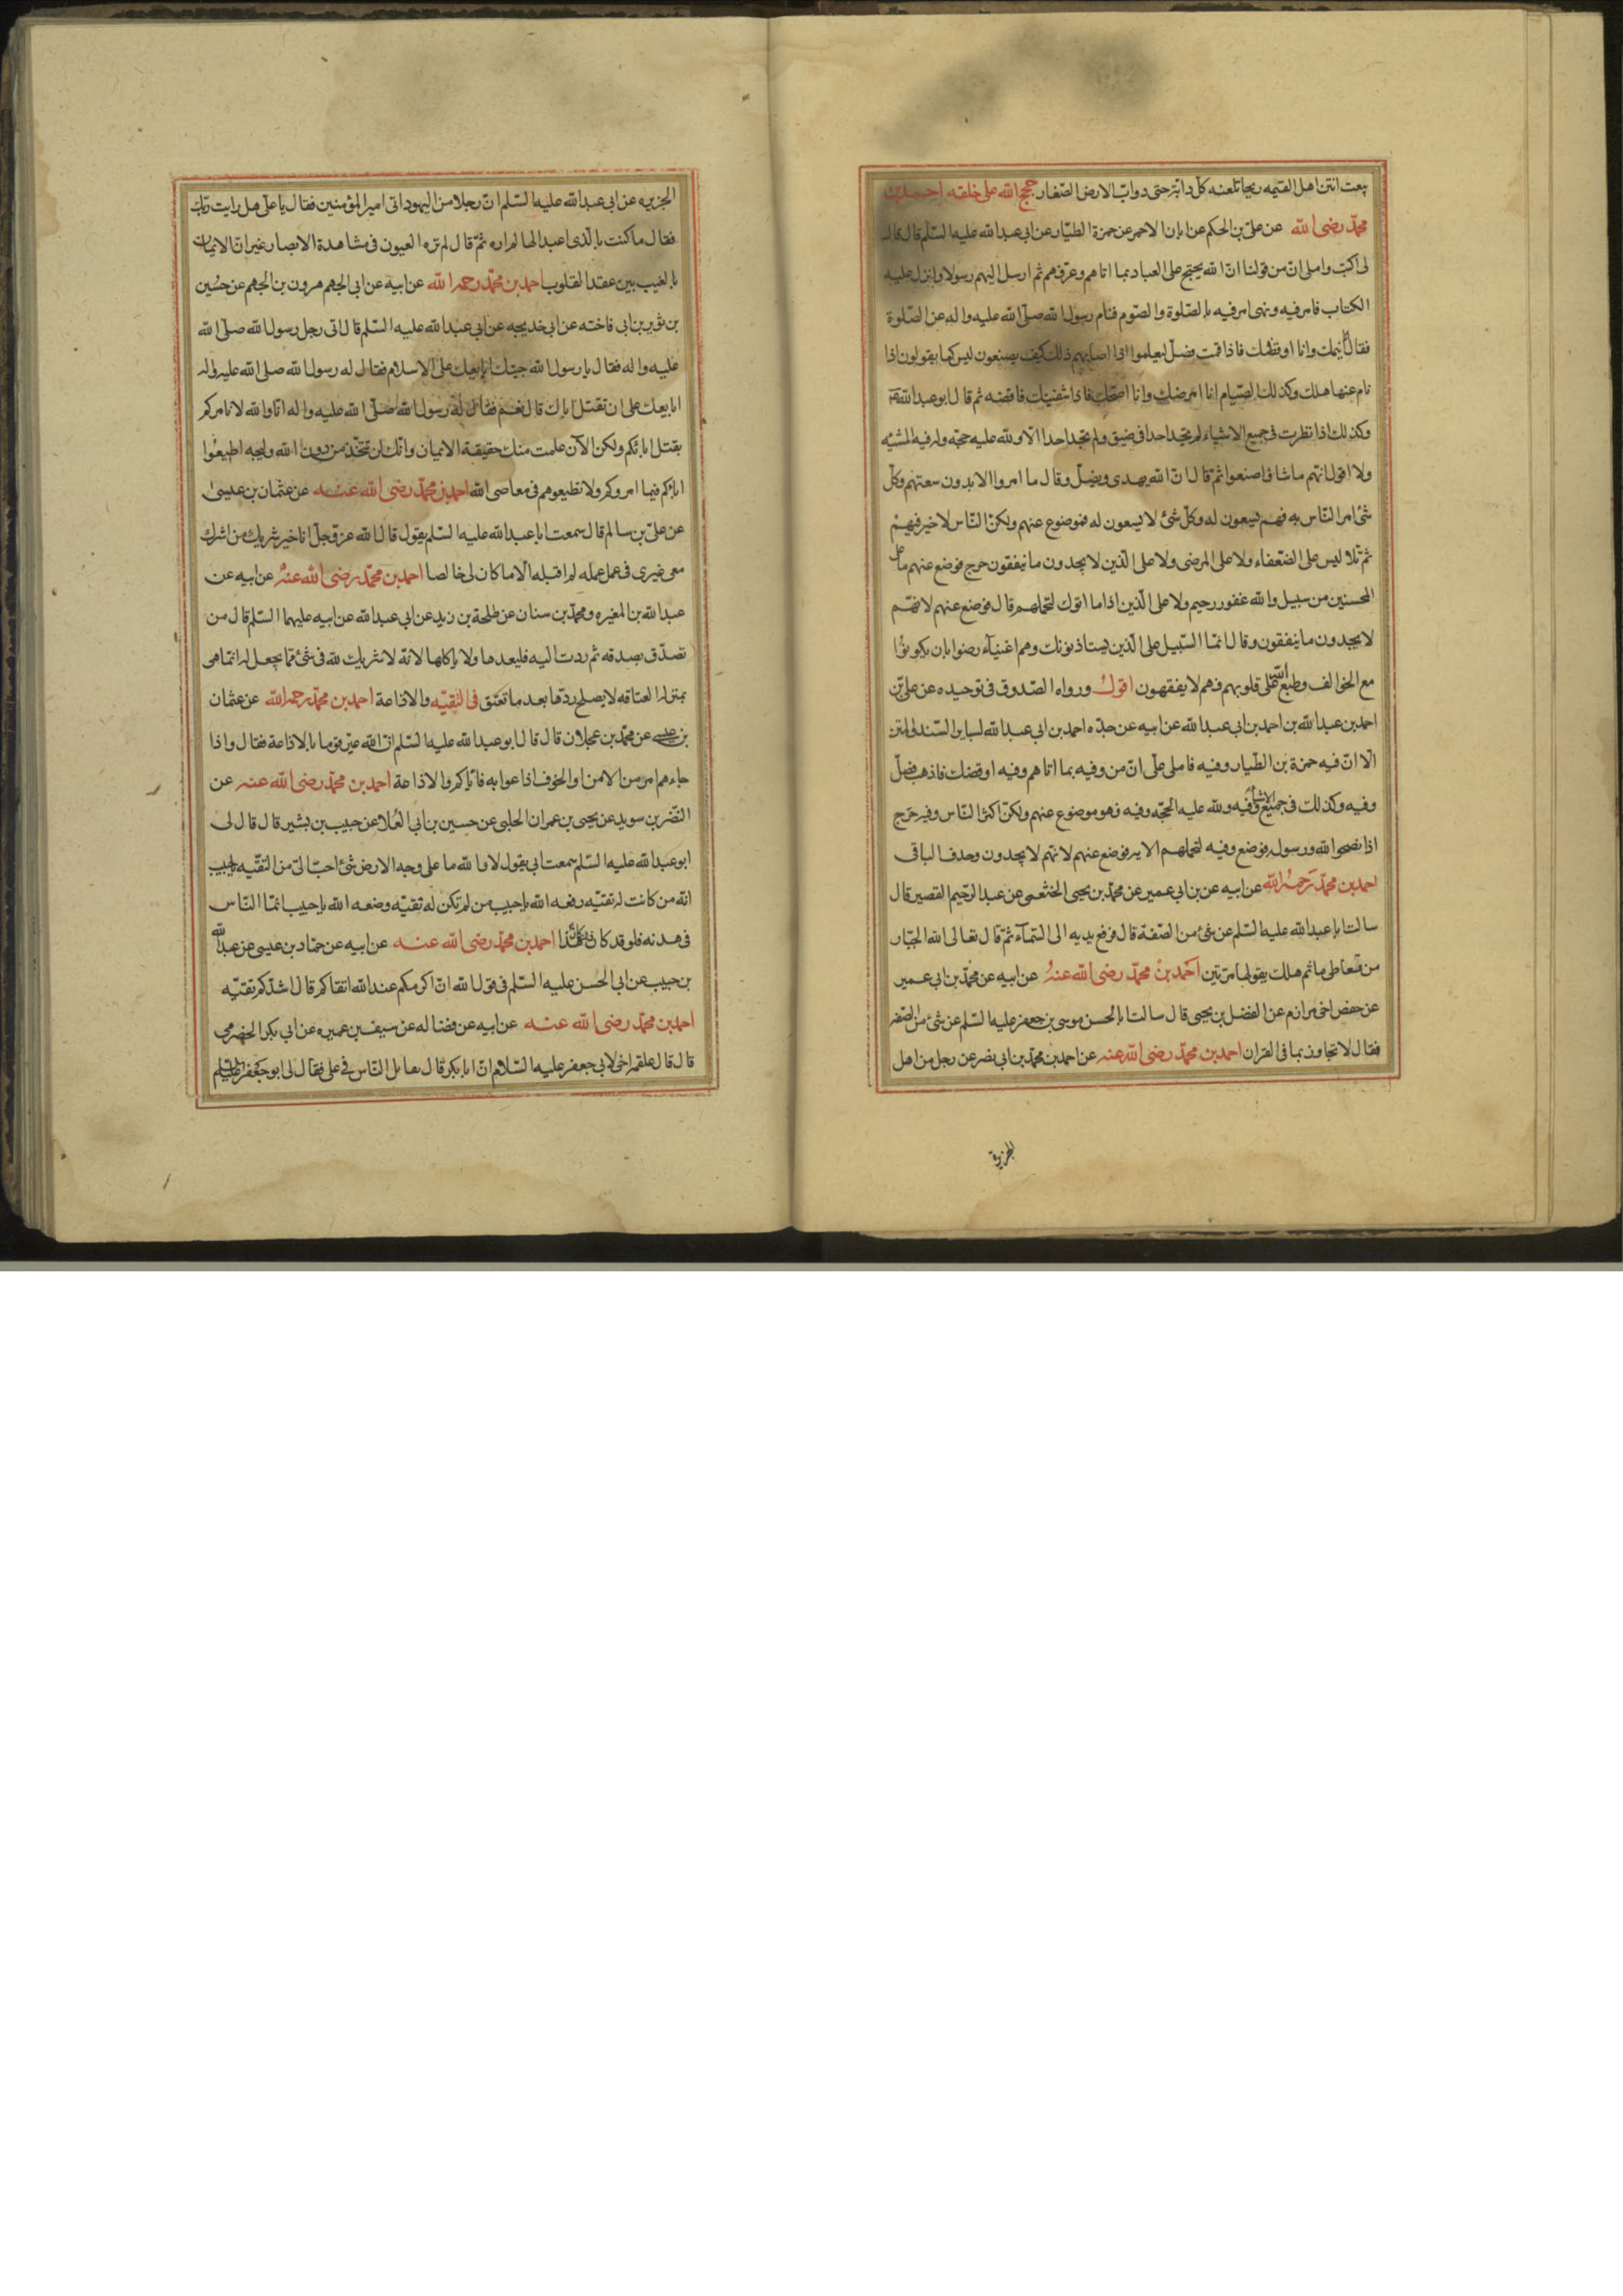 يبعث انتن اهل القيمه ريحا تلعنه كل دابة حتى دواب الارض الصغار حجج الله على خلقه احمد بن
محمد رضى الله عن على بن الحكم عن ابان الاحمر عن حمزة الطيار عن ابى عبد الله عليه السلم قال قال
لى اكتب واملى ان من قولنا ان الله يحتج على العباد بما اتاهم وعرفهم ثم ارسل اليهم رسولا وانزل عليه
الكتاب فامر فيه ونهى امر فيه بالصلوة والصوم فنام رسول الله صلى الله عليه واله عن الصلوة
فقال انا انيمك وانا اوقظك فاذا قمت فصل ليعلموا اذا اصابهم ذلك كيف يصنعون ليس كما يقولون اذا
نام عنها هلك وكذلك الصيام انا امرضك وانا اصحك فاذا شفيتك فاقضه ثم قال ابو عبد الله
وكذلك اذا نظرت فى جميع الاشياء لم تجد احدا فى ضيق ولم تجد احدا الا ولله عليه حجه وله فيه المشيه
ولا اقول انهم ما شاؤا صنعوا ثم قال ان الله يهدى ويضل وقال ما امروا الا بدون سعتهم وكل
شئ امر الناس به فهم يسعون له وكل شئ لا يسعون له فموضوع عنهم ولكن الناس لا خير فيهم
ثم تلا ليس على الضعفاء ولا على المرضى ولا على الذين لا يجدون ما ينفقون حرج فوضع عنهم ما على
المحسنين من سبيل والله غفور رحيم ولا على الذين اذا ما اتوك لتحملهم قال فوضع عنهم لانهم
لا يجدون ما ينفقون وقال انما السبيل على الذين يستاذنونك وهم اغنياء رضوا بان يكونوا
مع الخوالف وطبع الله على قلوبهم فهم لا يفقهون اقول ورواه الصدوق فى توحيده عن على بن
احمد بن عبد الله بن احمد بن ابى عبد الله عن ابيه عن جده احمد بن ابى عبد الله لساير السند والمتن
الا ان فيه حمزة بن الطيار وفيه فاملى على ان من وفيه بما اتاهم وفيه اوقضك فاذهب فصل
وفيه وكذلك فى جميع الاشياء وفيه ولله عليه الحجه وفيه فهو موضوع عنهم ولكن اكثر الناس وفيه حرج
اذا نصحوا لله ورسوله فوضع وفيه لتحملهم الايه فوضع عنهم لانهم لا يجدون وحذف الباقى
احمد بن محمد رحمه الله عن ابيه عن بن ابى عمير عن محمد بن يحيى الخثعمى عن عبد الرحيم القصير قال
سالت ابا عبد الله عليه السلم عن شئ من الصفة قال فرفع يديه الى السماء ثم قال تعالى الله الجبار
من تعاطى ما ثم هلك يقولها مرتين احمد بن محمد رضى الله عنه عن ابيه عن محمد بن ابى عمير
عن حفص اخى مرازم عن الفضل بن يحيى قال سالت ابا الحسن موسى بن جعفر عليه السلم عن شئ من الصفه
فقال لا تجاوز بما فى القران احمد بن محمد رضى الله عنه عن احمد بن محمد بن ابى نصر عن رجل من اهل
الجزيرة
الجزيره عن ابى عبد الله عليه السلم ان رجلا من اليهود اتى امير المؤمنين فقال يا على هل رايت ربك
فقال ما كنت بالذى اعبد الها لم اره ثم قال لم تره العيون فى مشاهدة الابصار غير ان الايمان
بالغيب بين عقد القلوب احمد بن محمد رحمه الله عن ابيه عن ابى الجهم هرون بن الجهم عن حسين
بن ثوير بن ابى فاخته عن ابى خديجه عن ابى عبد الله عليه السلم قال اتى رجل رسول الله صلى الله
عليه واله فقال يا رسول الله جيتك ابايعك على الاسلام فقال له رسول الله صلى الله عليه واله
ابايعك على ان تقتل اباك قال نعم فقال له رسول الله صلى الله عليه واله انا والله لا نامركم
بقتل ابائكم ولكن الان علمت منك حقيقة الايمان وانك لن تتخذ من دون الله وليجه اطيعوا
اباكم فيما امروكم ولا تطيعوهم فى معاصى الله احمد بن محمد رضى الله عنه عن عثمان بن عيسى
عن على بن سالم قال سمعت ابا عبد الله عليه السلم يقول قال الله عز وجل انا خير شريك من اشرك
معى غيرى فى عمل عمله لم اقبله الا ما كان لى خالصا احمد بن محمد رضى الله عنه عن ابيه عن
عبد الله بن المغيره ومحمد بن سنان عن طلحة بن زيد عن ابى عبد الله عن ابيه عليهما السلم قال من
تصدق بصدقه ثم ردت اليه فليعدها ولا ياكلها لانه لا شريك لله فى شئ مما يجعل له انما هى
بمنزله العتاقه لا يصلح ردها بعد ما تعتق فى التقيه والاذاعة احمد بن محمد رحمه الله عن عثمان
بن عيسى عن محمد بن عجلان قال قال ابو عبد الله عليه السلم ان الله عير قوما بالاذاعة فقال واذا
جاءهم امر من الامن او الخوف اذاعوا به فاياكم والاذاعة احمد بن محمد رضى الله عنه عن
النضر بن سويد عن يحيى بن عمران الحلبى عن حسين بن ابى العلا عن حبيب بن بشير قال قال لى
ابو عبد الله عليه السلم سمعت ابى يقول لا والله ما على وجه الارض شئ احب الى من التقيه يا حبيب
انه من كانت له تقيه رفعه الله يا حبيب من لم تكن له تقيه وضعه الله يا حبيب انما الناس
فى هدنه فلو قد كان ذلك كان هذا احمد بن محمد رضى الله عنه عن ابيه عن حماد بن عيسى عن عبد الله
بن حبيب عن ابى الحسن عليه السلم فى قول الله ان اكرمكم عند الله اتقاكم قال اشدكم تقيه
احمد بن محمد رضى الله عنه عن ابيه عن فضاله عن سيف بن عميره عن ابى بكر الحضرمى
قال قال علقمه اخى لابى جعفر عليه السلام ان ابا بكر قال يقاتل الناس فى على فقال لى ابو جعفر عليه السلم